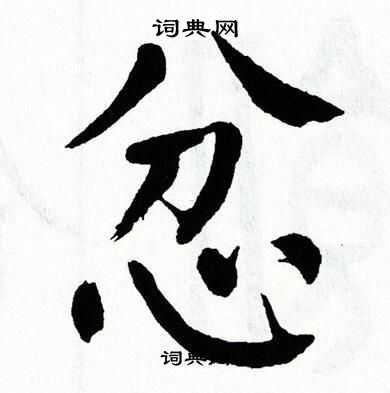 词典网
忿
词典网